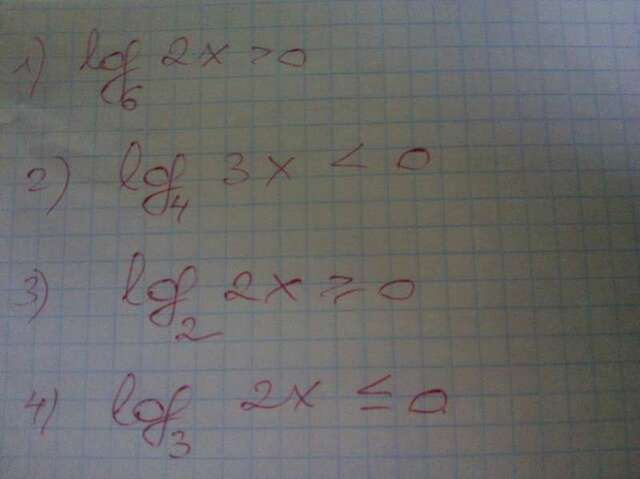 1) log₆ 2x > 0
2) log₄ 3x < 0
3) log₂ 2x ≥ 0
4) log₃ 2x ≤ 0